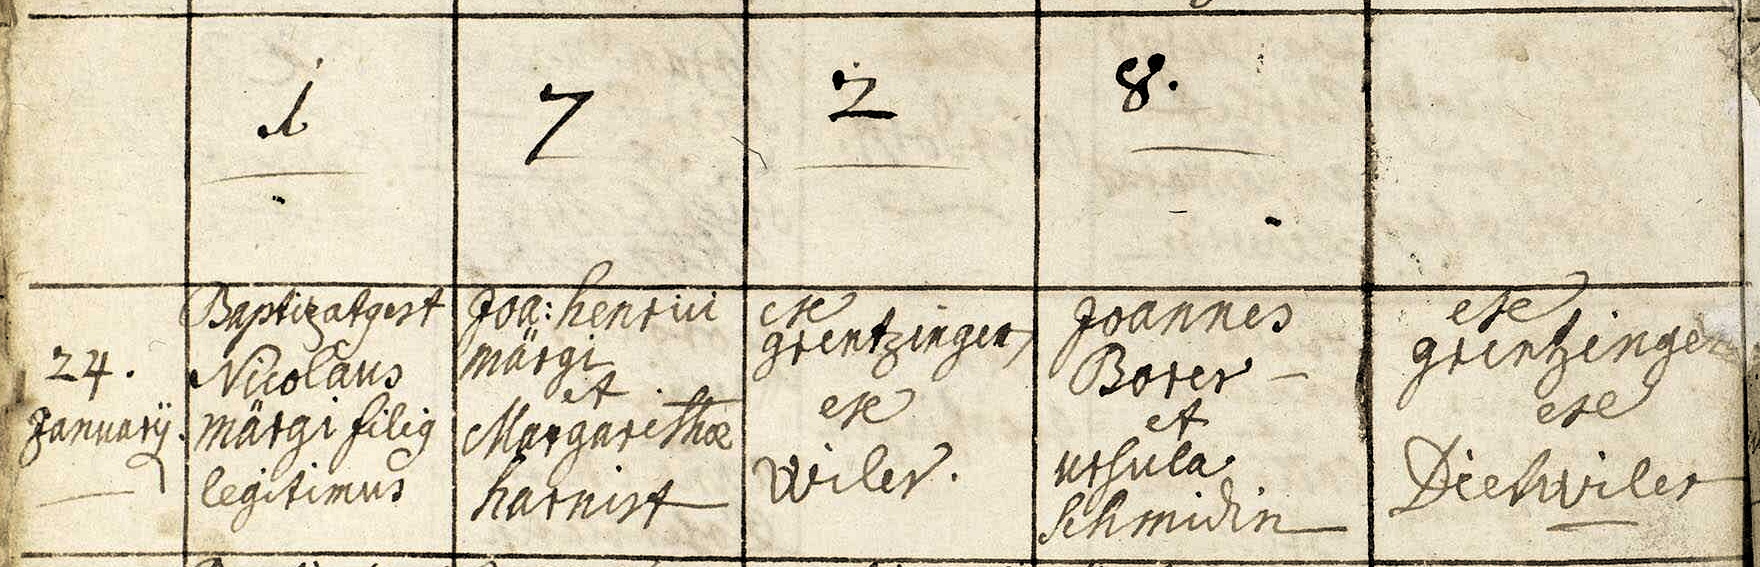 1 7 2 8.
24.
Januarÿ.
Baptizatꝯ est
Nicolaus
märgi filiꝯ
legitimus
Joa: henrici
märgi
et
Margarithæ
harnist
ex
grentzingen
ex
wiler.
Joannes
Borer
et
ursula
schmidin
ex
grentzingen
ex
Dietwiler